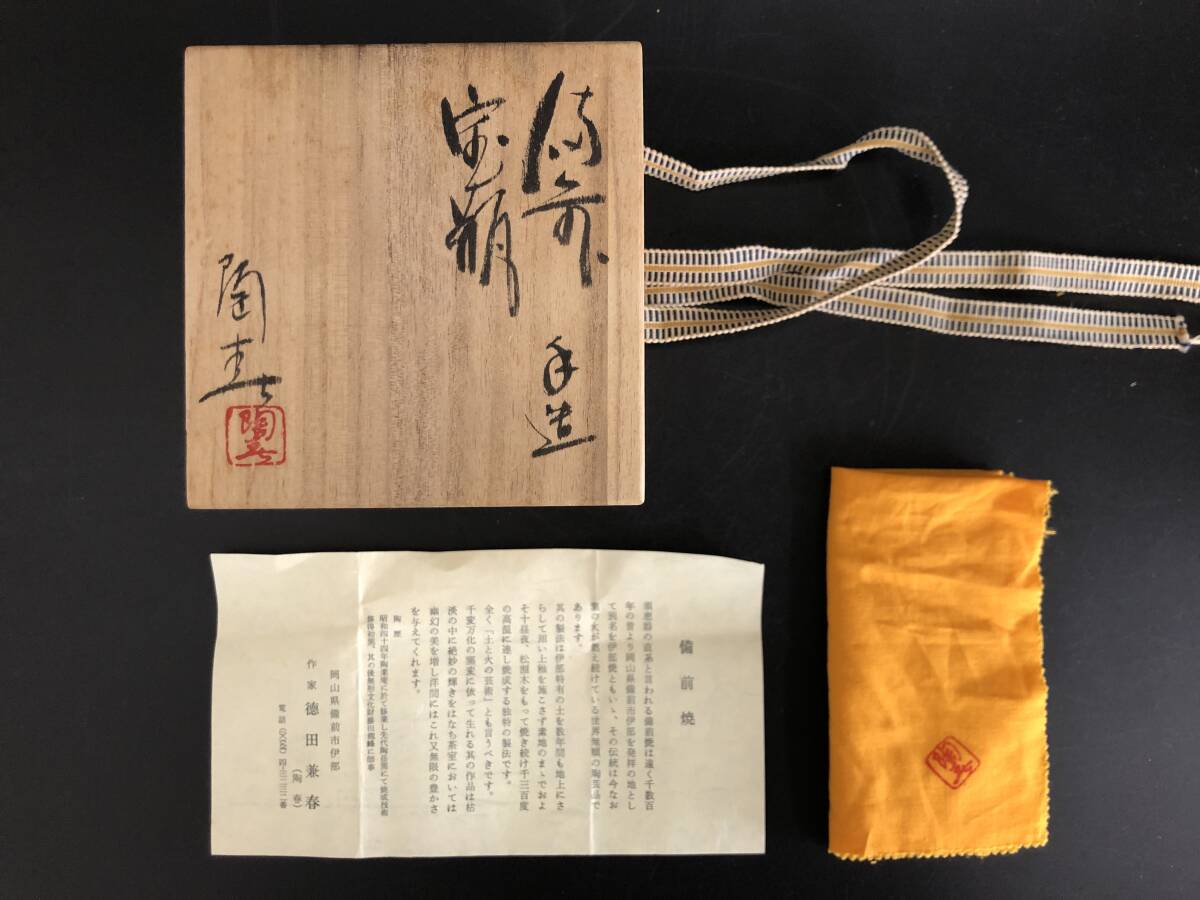 備前 手造
宝瓶
陶春
陶春
備前焼
須恵器の直系と言われる備前焼は遠く千数百
年の昔より岡山県備前市伊部を発祥の地とし
て別名を伊部焼ともいゝ、その伝統は今なお
窯の火が燃え続けている世界無類の陶芸品で
あります。
其の製法は伊部特有の土を数年間も地上にさ
らして用い上釉を施こさず素地のまゝでおよ
そ十昼夜、松割木をもって焼き続け千三百度
の高温に達し焼成する独特の製法です。
全く「土と火の芸術」とも言うべきです。
千変万化の窯変に依って生れる其の作品は枯
淡の中に絶妙の輝きをはなち茶室においては
幽幻の美を増し洋間にはこれ又無限の豊かさ
を与えてくれます。
陶歴
昭和四十四年陶業庵に於て修業し先代陶岳窯にて焼成技術
修得初窯、其の後無形文化財藤田龍峰に師事
岡山県備前市伊部
作家 徳田兼春
(陶春)
電話
陶春